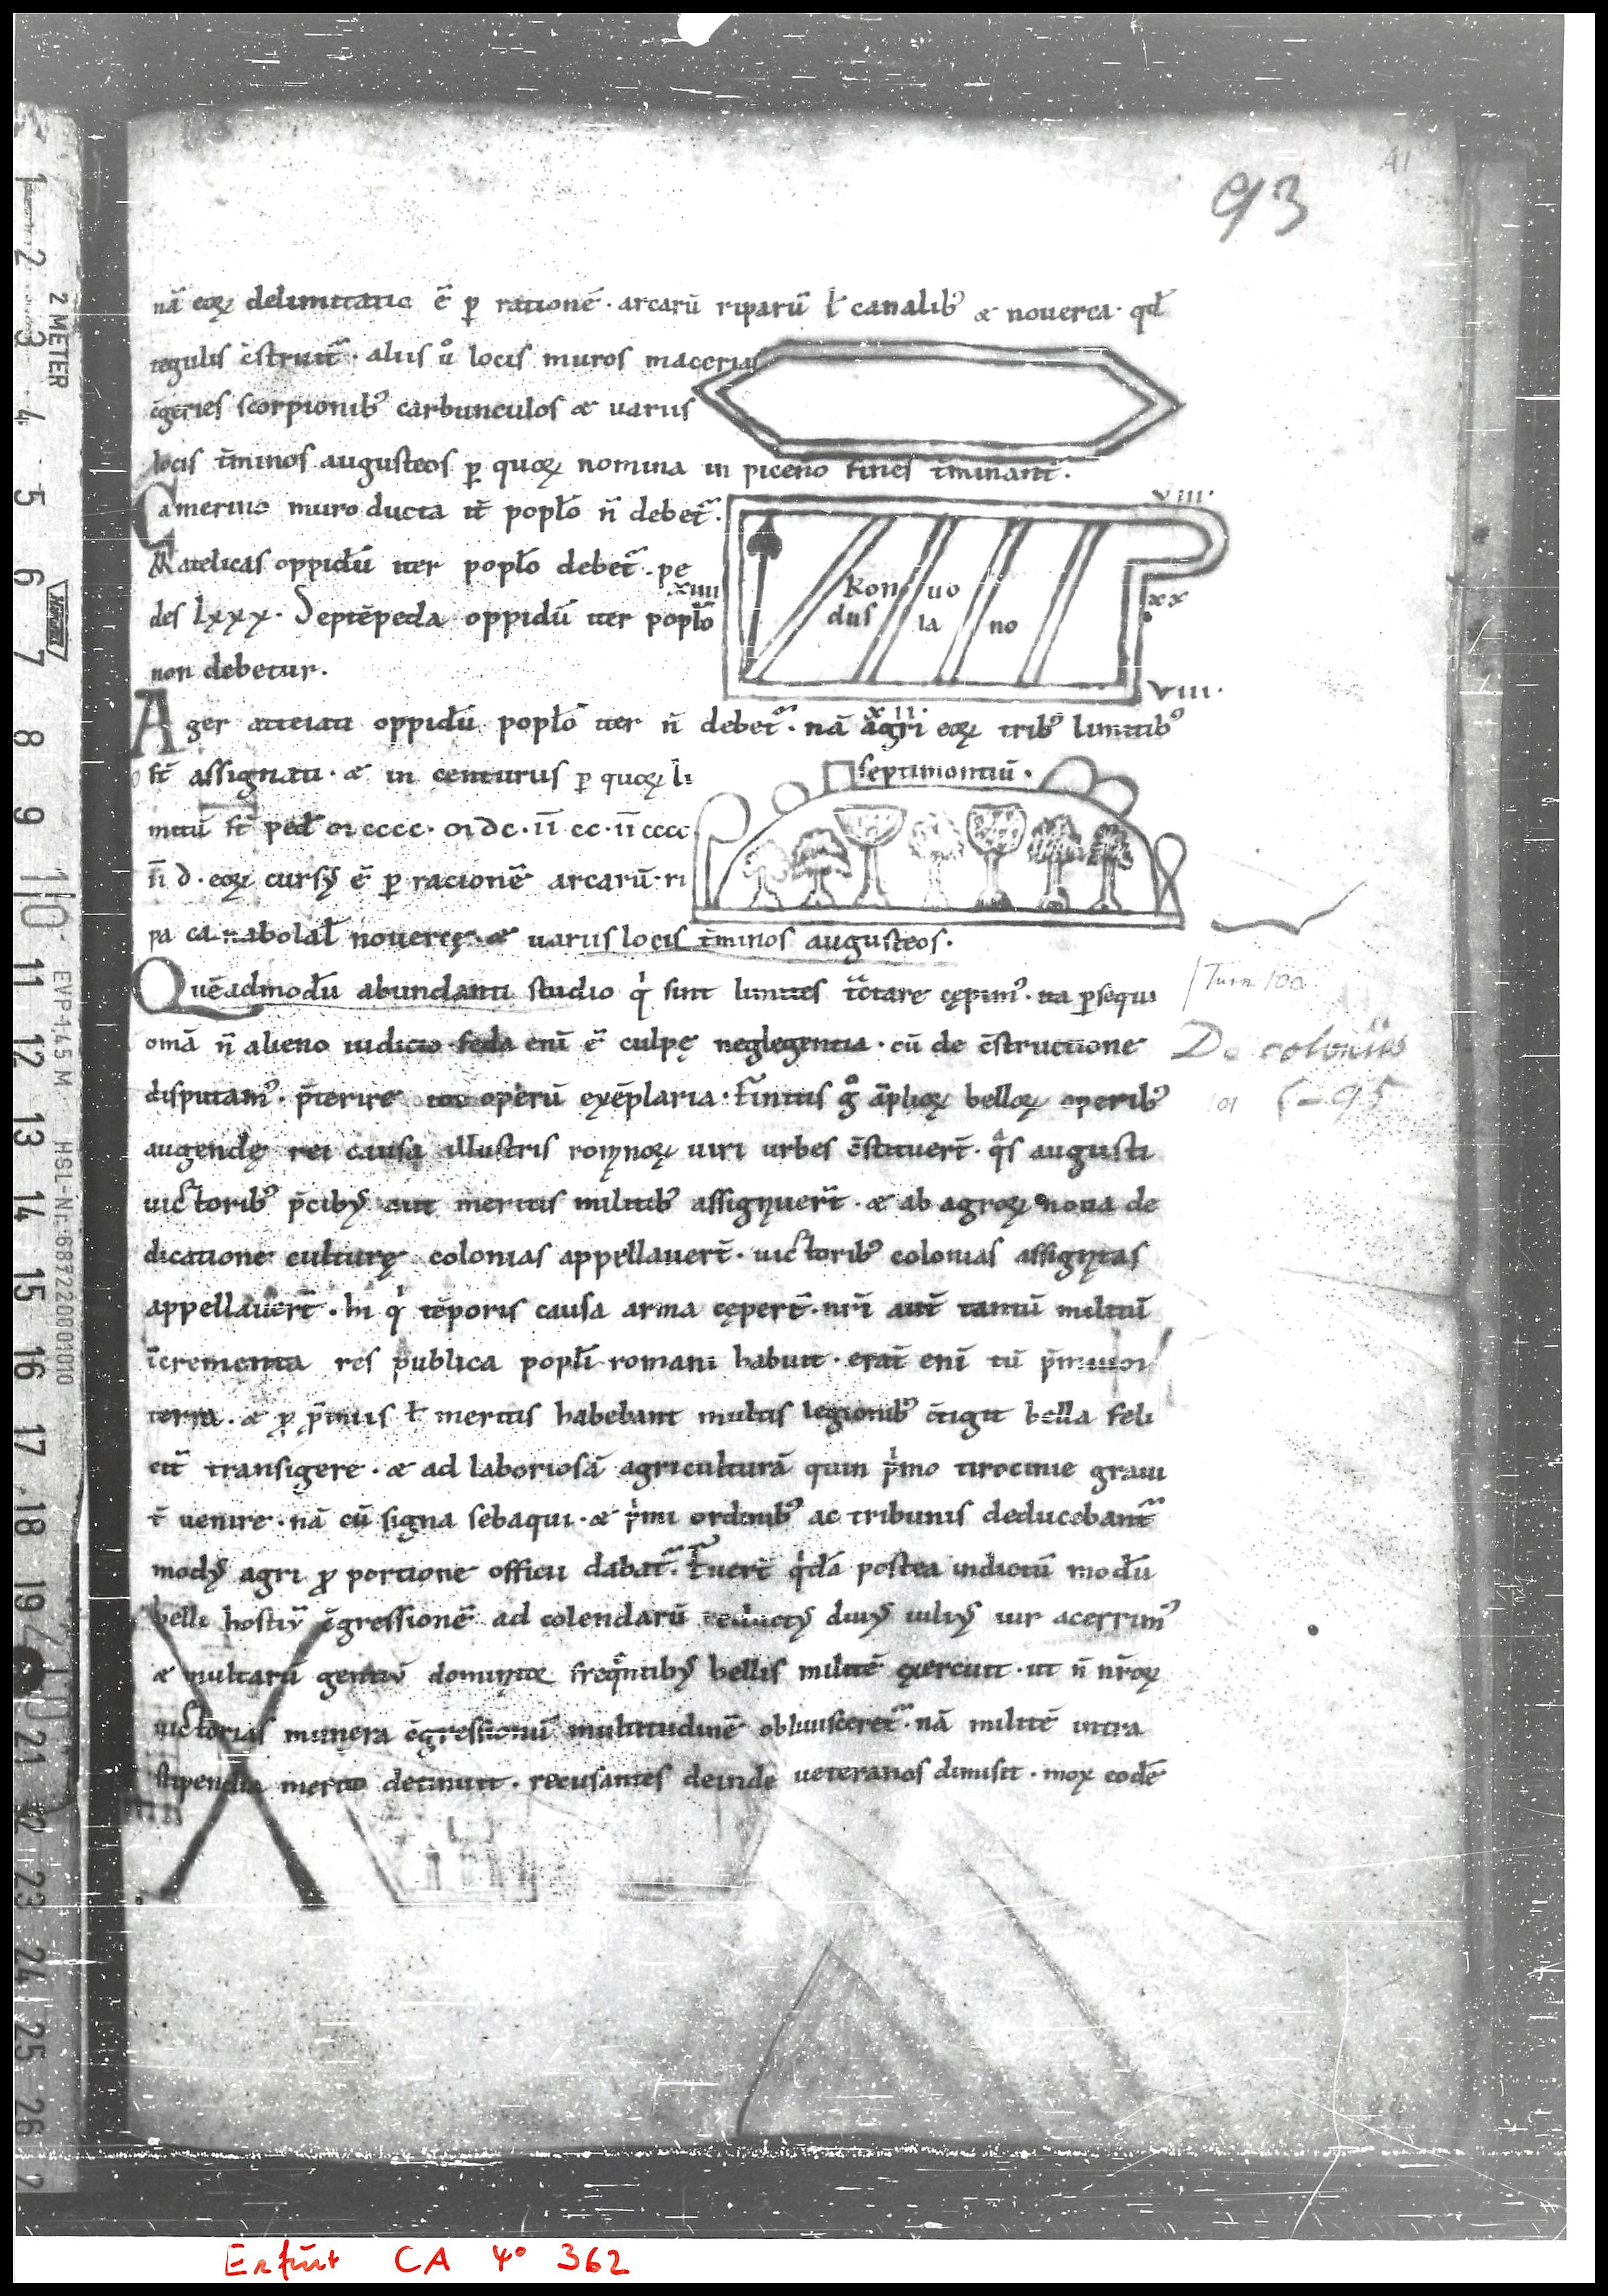 93
41
nā eoꝝ delimitatio ē ꝑ rationē · arcarū riparū ł canalib' & nouerca · qđ
tegulis c̄struit̃ · aliis ů locis muros macerias
c̄geries scorpionib' carbunculos & uariis
locis t̄minos augusteos ꝑ quoꝝ nomina in piceno fines t̄minant̃.
Camerino muro ducta it̄ popło n̄ debet̃.
Matelicas oppidū iter popło debet̃ . pe
des lxxx. Septēpeda oppidū iter popło
non debetur.
VIII.
XIIII
Kon uo
dus la no
xx
VIII.
XII.
Ager atteiati oppidū popło iter n̄ debet̃. nā agri eoꝝ trib' limitib'
st̄ assignati · & in centuriis ꝑ quoꝝ li
septimontiū.
mitū st̄ ped̄ cccc · dc · II cc · II cccc
II d · eoꝝ cursꝰ ē ꝑ racionē arcarū · ri
pa canabolał nouercę & uariis locis t̄minos augusteos.
Quēadmodū abundanti studio q̇ sint limites tc̃tare cępim' · ita ꝑsequi
Turn 100
omā n̄ alieno iudicio feda eni ē culpę neglegentia · cū de c̄structione
De coloniis
disputam' · p̄terire operū exēplaria · finitis g̊ āplioꝝ belloꝝ operib'
101 f-95
augendę rei causa illustris romnoꝝ uiri urbes c̄stituert̄ · qͣs augusti
uictorib' p̄cibꝰ aut meritis militib' assignuert̄ · & ab agroꝝ noua de
dicatione culturę colonias appellauert̄ · uictorib' colonias assigntas
appellauert̄ · hi q̇ tēporis causa arma cępert̄ · nr̄i aut̄ tantū militū
īcrementa res publica popłi romani habuit · erat̄ eni tū
terra · & ꝓ p̄miis ł meritis habebant multis legionib' c̄tigit bella feli
cit̃ transigere · & ad laboriosā agriculturā quin pͥmo tirocinie graui
t̄ uenire · nā cū signa sebaqui · & pͥmi ordinib' ac tribunis deducebant̃
modꝰ agri ꝓ portione officii dabat̃. Fuert̄ qͥdā postea indictū modū
belli hostiū c̄gressionē ad colendarū reductꝰ diuꝰ iuliꝰ uir acerrim'
& multarū gentiū freqͣntibꝰ bellis militē exercuit · ut n̄ nr̄oꝝ
uictorias munera c̄gressionū multitudinē obliuisceret̃ · nā militē intra
stipendia merito detinuit · recusantes deinde ueteranos dimisit · mox eodē
2 METER
1
2
3
4
5
6
7
8
9
10
11
12
13
14
15
16
17
18
19
21
22
23
24
25
26
2
EVP 1,45 M HSL-Nr. 6872200001010
Erfurt CA 4° 362